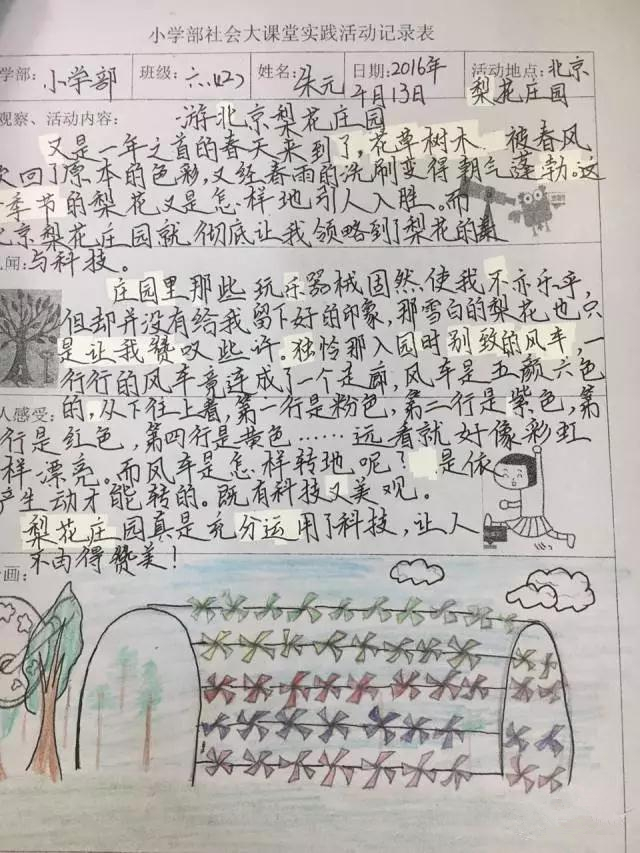 小学部社会大课堂实践活动记录表
学部: 小学部 班级: 六.(2) 姓名: 朱元 日期: 2016年4月13日 活动地点: 北京梨花庄园
观察、活动内容: 游北京梨花庄园
又是一年之首的春天来到了,花草树木 被春风
回了原本的色彩,又经春雨的洗刷变得朝气蓬勃。这
季节的梨花又是怎样地引人入胜。而
北京梨花庄园就彻底让我领略到了梨花的美
闻: 与科技。
庄园里那些玩乐器械固然使我不亦乐乎,
但却并没有给我留下好的印象,那雪白的梨花也只
是让我赞叹些许。独怜那入园时别致的风车,一
行行的风车竟连成了一个走廊,风车是五颜六色
人感受: 的,从下往上看,第一行是粉色,第二行是紫色,第
行是红色,第四行是黄色……远看就好像彩虹
样漂亮。而风车是怎样转地呢? 是依
产生动才能转的。既有科技又美观。
梨花庄园真是充分运用了科技,让人
不由得赞美!
画: